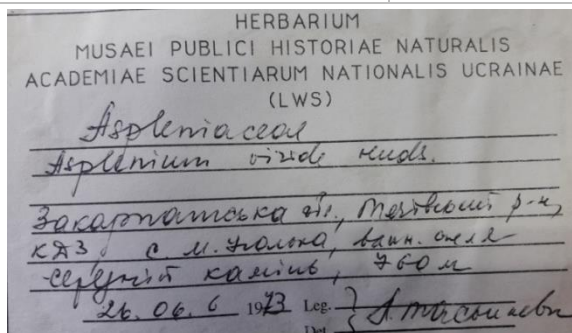 HERBARIUM
MUSAEI PUBLICI HISTORIAE NATURALIS
ACADEMIAE SCIENTIARUM NATIONALIS UCRAINAE
(LWS)
Aspleniaceae
Asplenium viride Huds.
Закарпатська обл., Тячівський р-н,
КДЗ, с. М. Уголька, вапн. скеля
середній камінь, 760 м
26. 06. 1973 Leg.
Det.